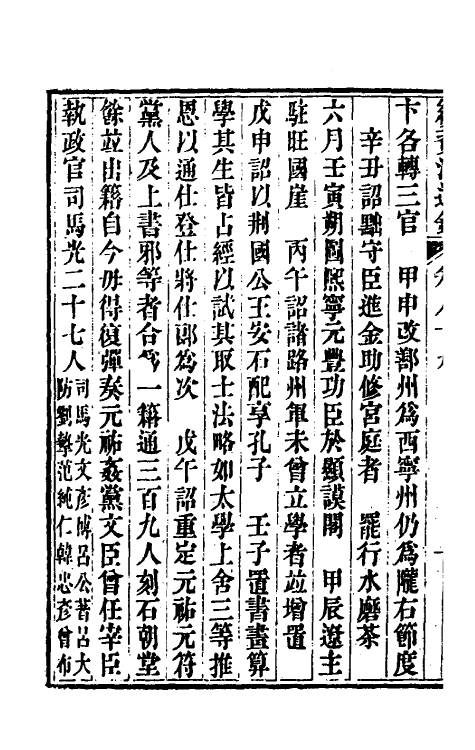 卞各轉三官　甲申改鄯州爲西寧州仍爲隴右節度
辛丑詔黜守臣進金助修宮庭者　罷行水磨茶
六月壬寅朔圖熙寧元豐功臣於顯謨閣　甲辰遼主
駐旺國崖　丙午詔諸路州軍未曾立學者竝增置
戊申詔以荆國公王安石配享孔子　壬子置書畫算
學其生皆占經以試其取士法略如太學上舍三等推
恩以通仕登仕將仕郎爲次　戊午詔重定元祐元符
黨人及上書邪等者合爲一籍通三百九人刻石朝堂
餘竝出籍自今毋得復彈奏元祐姦黨文臣曾任宰臣
執政官司馬光二十七人司馬光文彥博呂公著呂大
防劉摯范純仁韓忠彥曾布